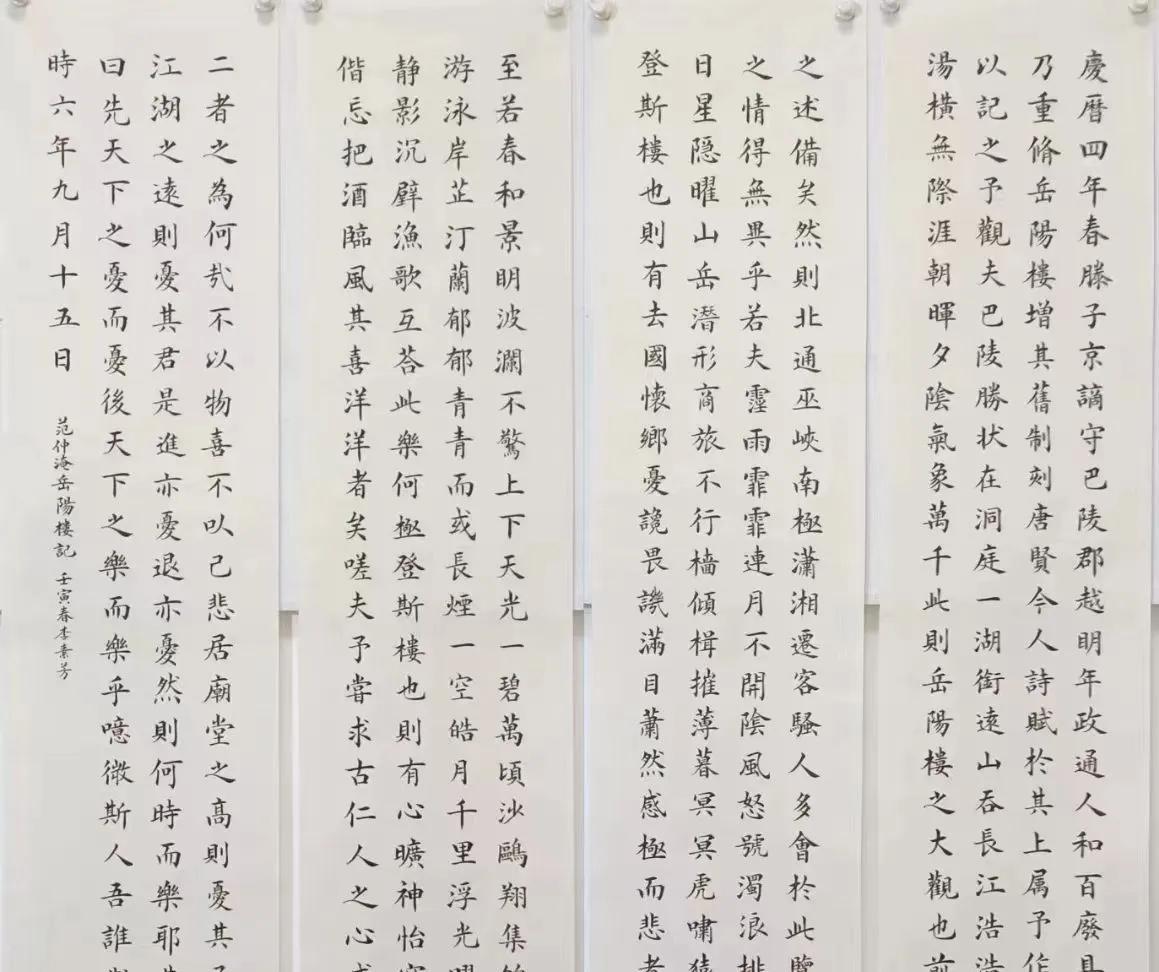 慶曆四年春滕子京謫守巴陵郡越明年政通人和百廢具
乃重脩岳陽樓增其舊制刻唐賢今人詩賦於其上属予作
以記之予觀夫巴陵勝状在洞庭一湖銜遠山吞長江浩浩
湯橫無際涯朝暉夕陰氣象萬千此則岳陽樓之大觀也前
之述備矣然則北通巫峽南極瀟湘遷客騷人多會於此覽
之情得無異乎若夫霪雨霏霏連月不開陰風怒號濁浪排
日星隠曜山岳潛形商旅不行檣傾楫摧薄暮冥冥虎嘯猿
登斯樓也則有去國懷鄉憂讒畏譏滿目蕭然感極而悲者
至若春和景明波瀾不驚上下天光一碧萬頃沙鷗翔集
游泳岸芷汀蘭郁郁青青而或長煙一空皓月千里浮光曜
静影沉璧漁歌互荅此樂何極登斯樓也則有心曠神怡
偕忘把酒臨風其喜洋洋者矣嗟夫予嘗求古仁人之心或
二者之為何哉不以物喜不以己悲居廟堂之高則憂其
江湖之遠則憂其君是進亦憂退亦憂然則何時而樂耶
曰先天下之憂而憂後天下之樂而樂乎噫微斯人吾誰
時六年九月十五日
范仲淹岳陽樓記 壬寅春李素芳